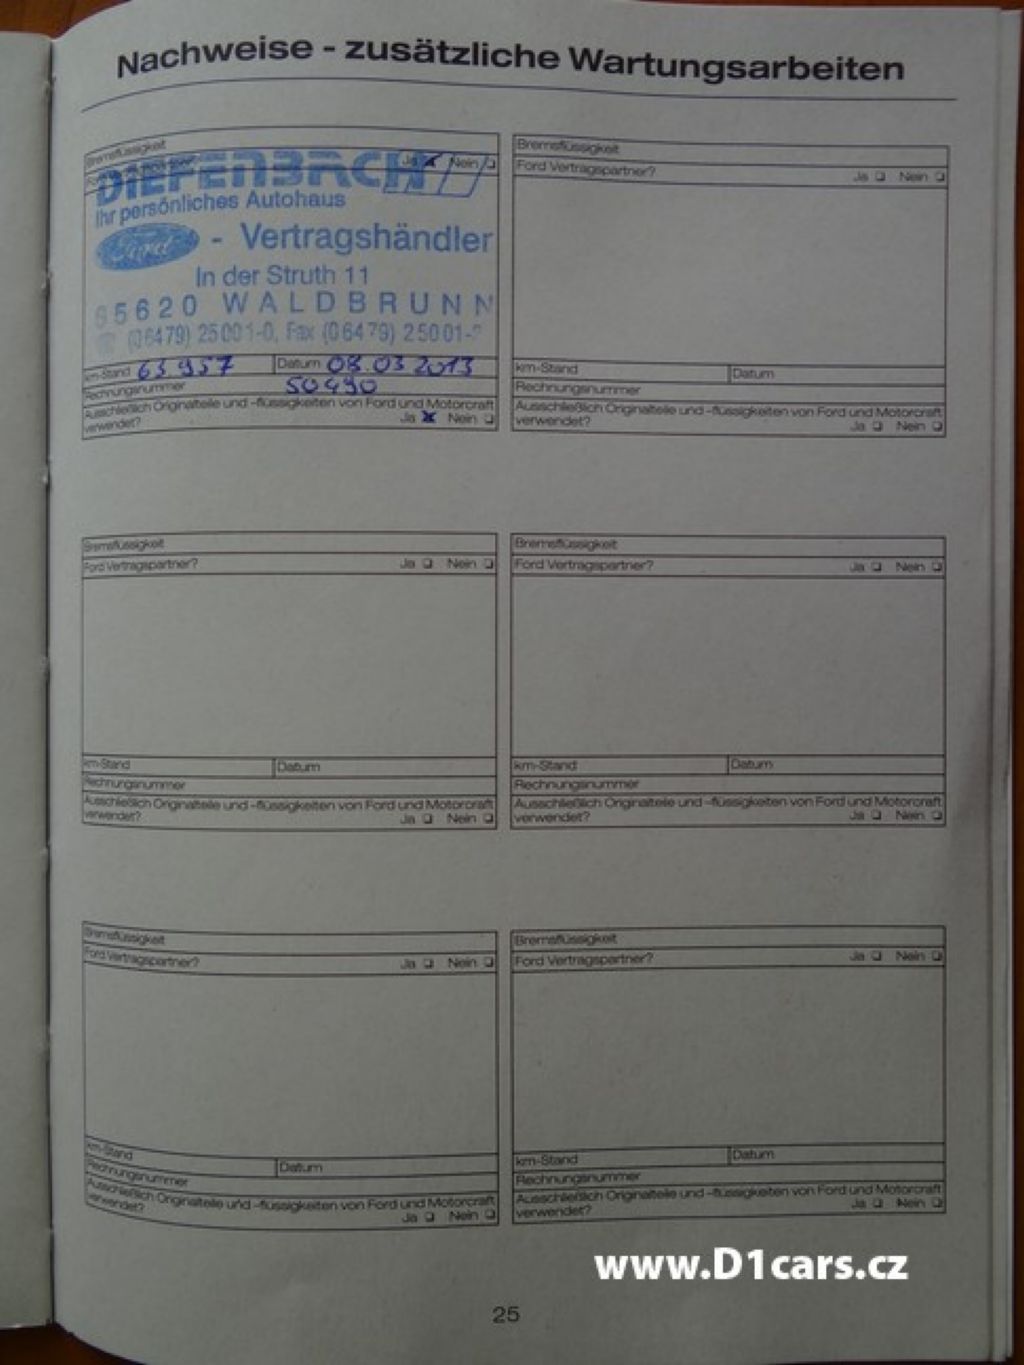 Nachweise - zusätzliche Wartungsarbeiten
Bremsflüssigkeit
Ja Nein
DIEFENBACH
Ihr persönliches Autohaus
Ford - Vertragshändler
In der Struth 11
65620 WALDBRUNN
(06479) 25001-0, Fax (06479) 25001-
km-Stand 63.957 Datum 08.03.2013
Rechnungsnummer 50490
Ausschließlich Originalteile und -flüssigkeiten von Ford und Motorcraft
verwendet? Ja Nein
Bremsflüssigkeit
Ford Vertragspartner? Ja Nein
km-Stand Datum
Rechnungsnummer
Ausschließlich Originalteile und -flüssigkeiten von Ford und Motorcraft
verwendet? Ja Nein
Bremsflüssigkeit
Ford Vertragspartner? Ja Nein
km-Stand Datum
Rechnungsnummer
Ausschließlich Originalteile und -flüssigkeiten von Ford und Motorcraft
verwendet? Ja Nein
Bremsflüssigkeit
Ford Vertragspartner? Ja Nein
km-Stand Datum
Rechnungsnummer
Ausschließlich Originalteile und -flüssigkeiten von Ford und Motorcraft
verwendet? Ja Nein
Bremsflüssigkeit
Ford Vertragspartner? Ja Nein
km-Stand Datum
Rechnungsnummer
Ausschließlich Originalteile und -flüssigkeiten von Ford und Motorcraft
verwendet? Ja Nein
Bremsflüssigkeit
Ford Vertragspartner? Ja Nein
km-Stand Datum
Rechnungsnummer
Ausschließlich Originalteile und -flüssigkeiten von Ford und Motorcraft
verwendet? Ja Nein
www.D1cars.cz
25